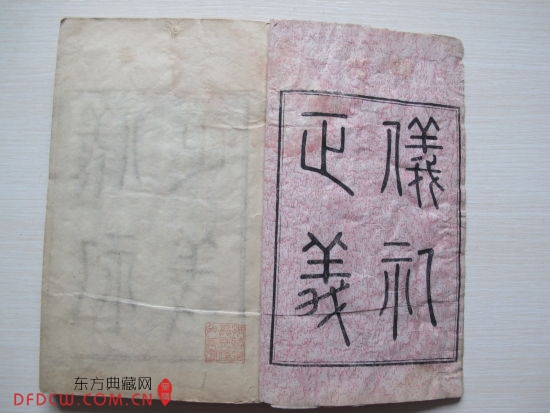 儀礼
正義
东方典藏网
DFDCW.COM.CN